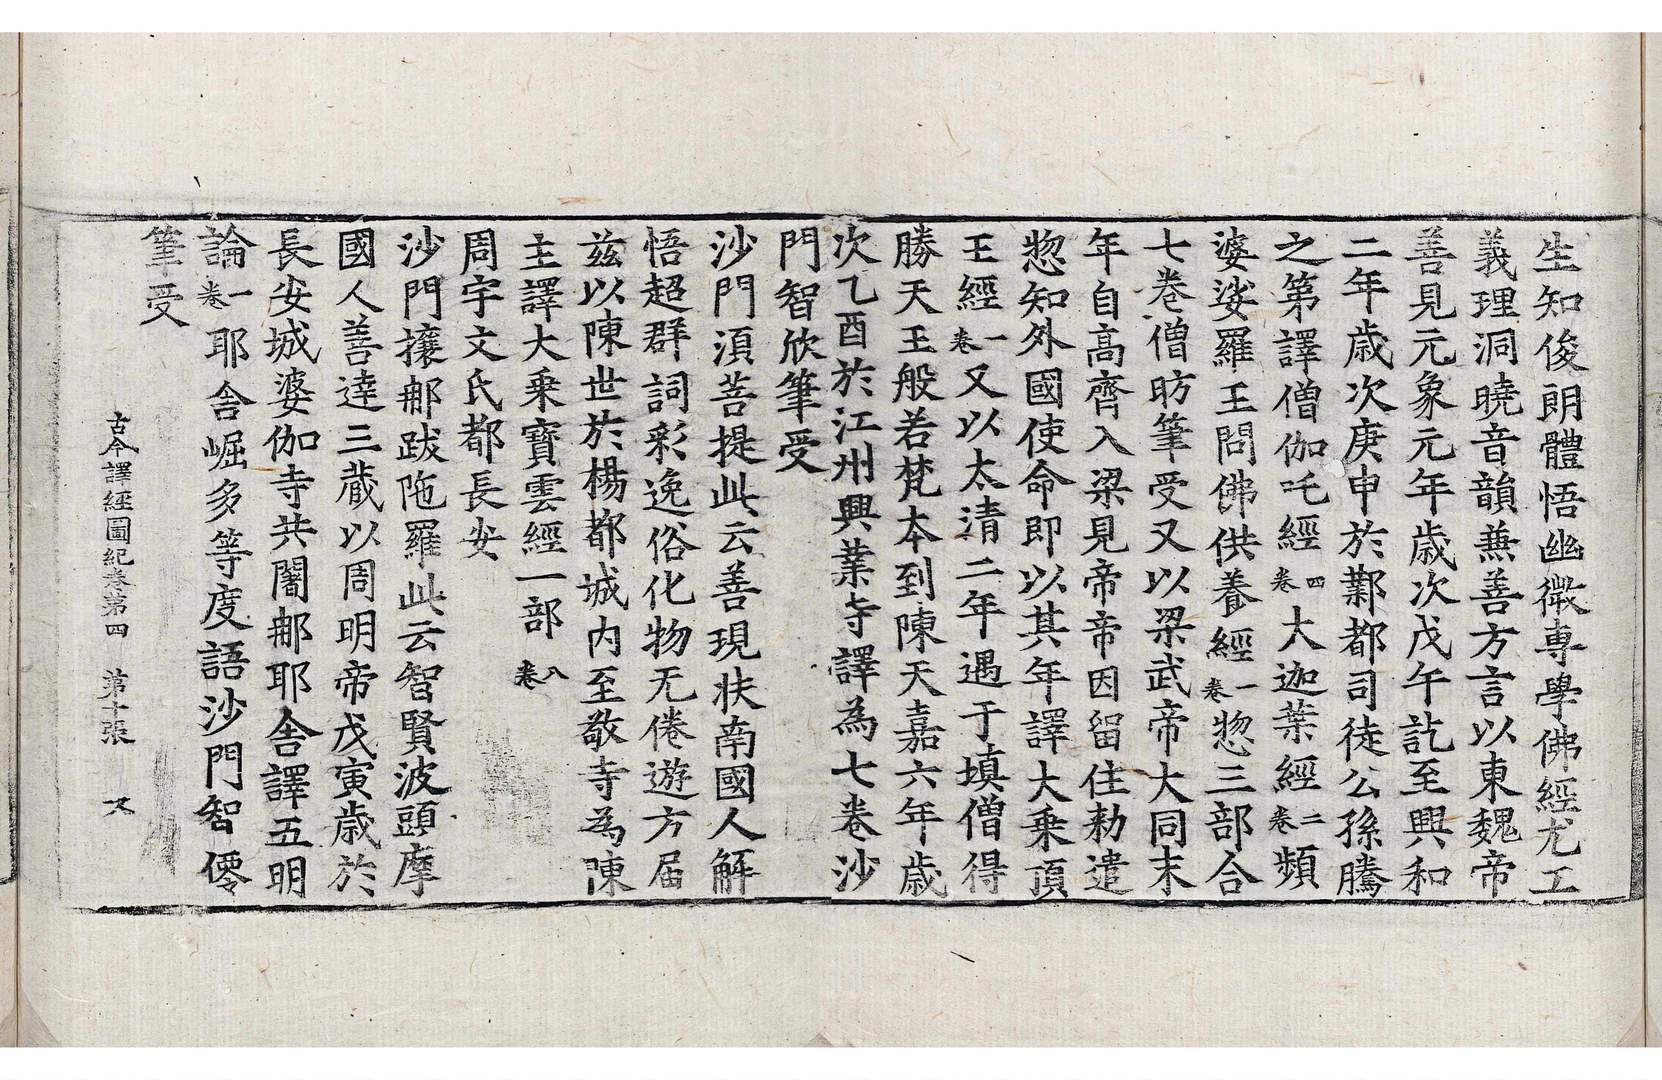 生知俊朗體悟幽微專學佛經尤工
義理洞曉音韻兼善方言以東魏帝
善見元象元年歲次戊午訖至興和
二年歲次庚申於鄴都司徒公孫騰
之第譯僧伽吒經四卷大迦葉經二卷頻
婆娑羅王問佛供養經一卷惣三部合
七卷僧昉筆受又以梁武帝大同末
年自高齊入梁見帝帝因留住勑遣
惣知外國使命即以其年譯大乗頂
王經一卷又以太清二年遇于填僧得
勝天王般若梵本到陳天嘉六年歲
次乙酉於江州興業寺譯為七卷沙
門智欣筆受
沙門湏菩提此云善現扶南國人解
悟超群詞彩逸俗化物无倦遊方届
兹以陳世於楊都城内至敬寺為陳
主譯大乗寶雲經一部八卷
周宇文氏都長安
沙門攘那跋陁羅此云智賢波頭摩
國人善達三藏以周明帝戊寅歲於
長安城婆伽寺共闍那耶舎譯五明
論一卷耶舎崛多等度語沙門智僊
筆受
古今譯經圖紀卷第四 第十張